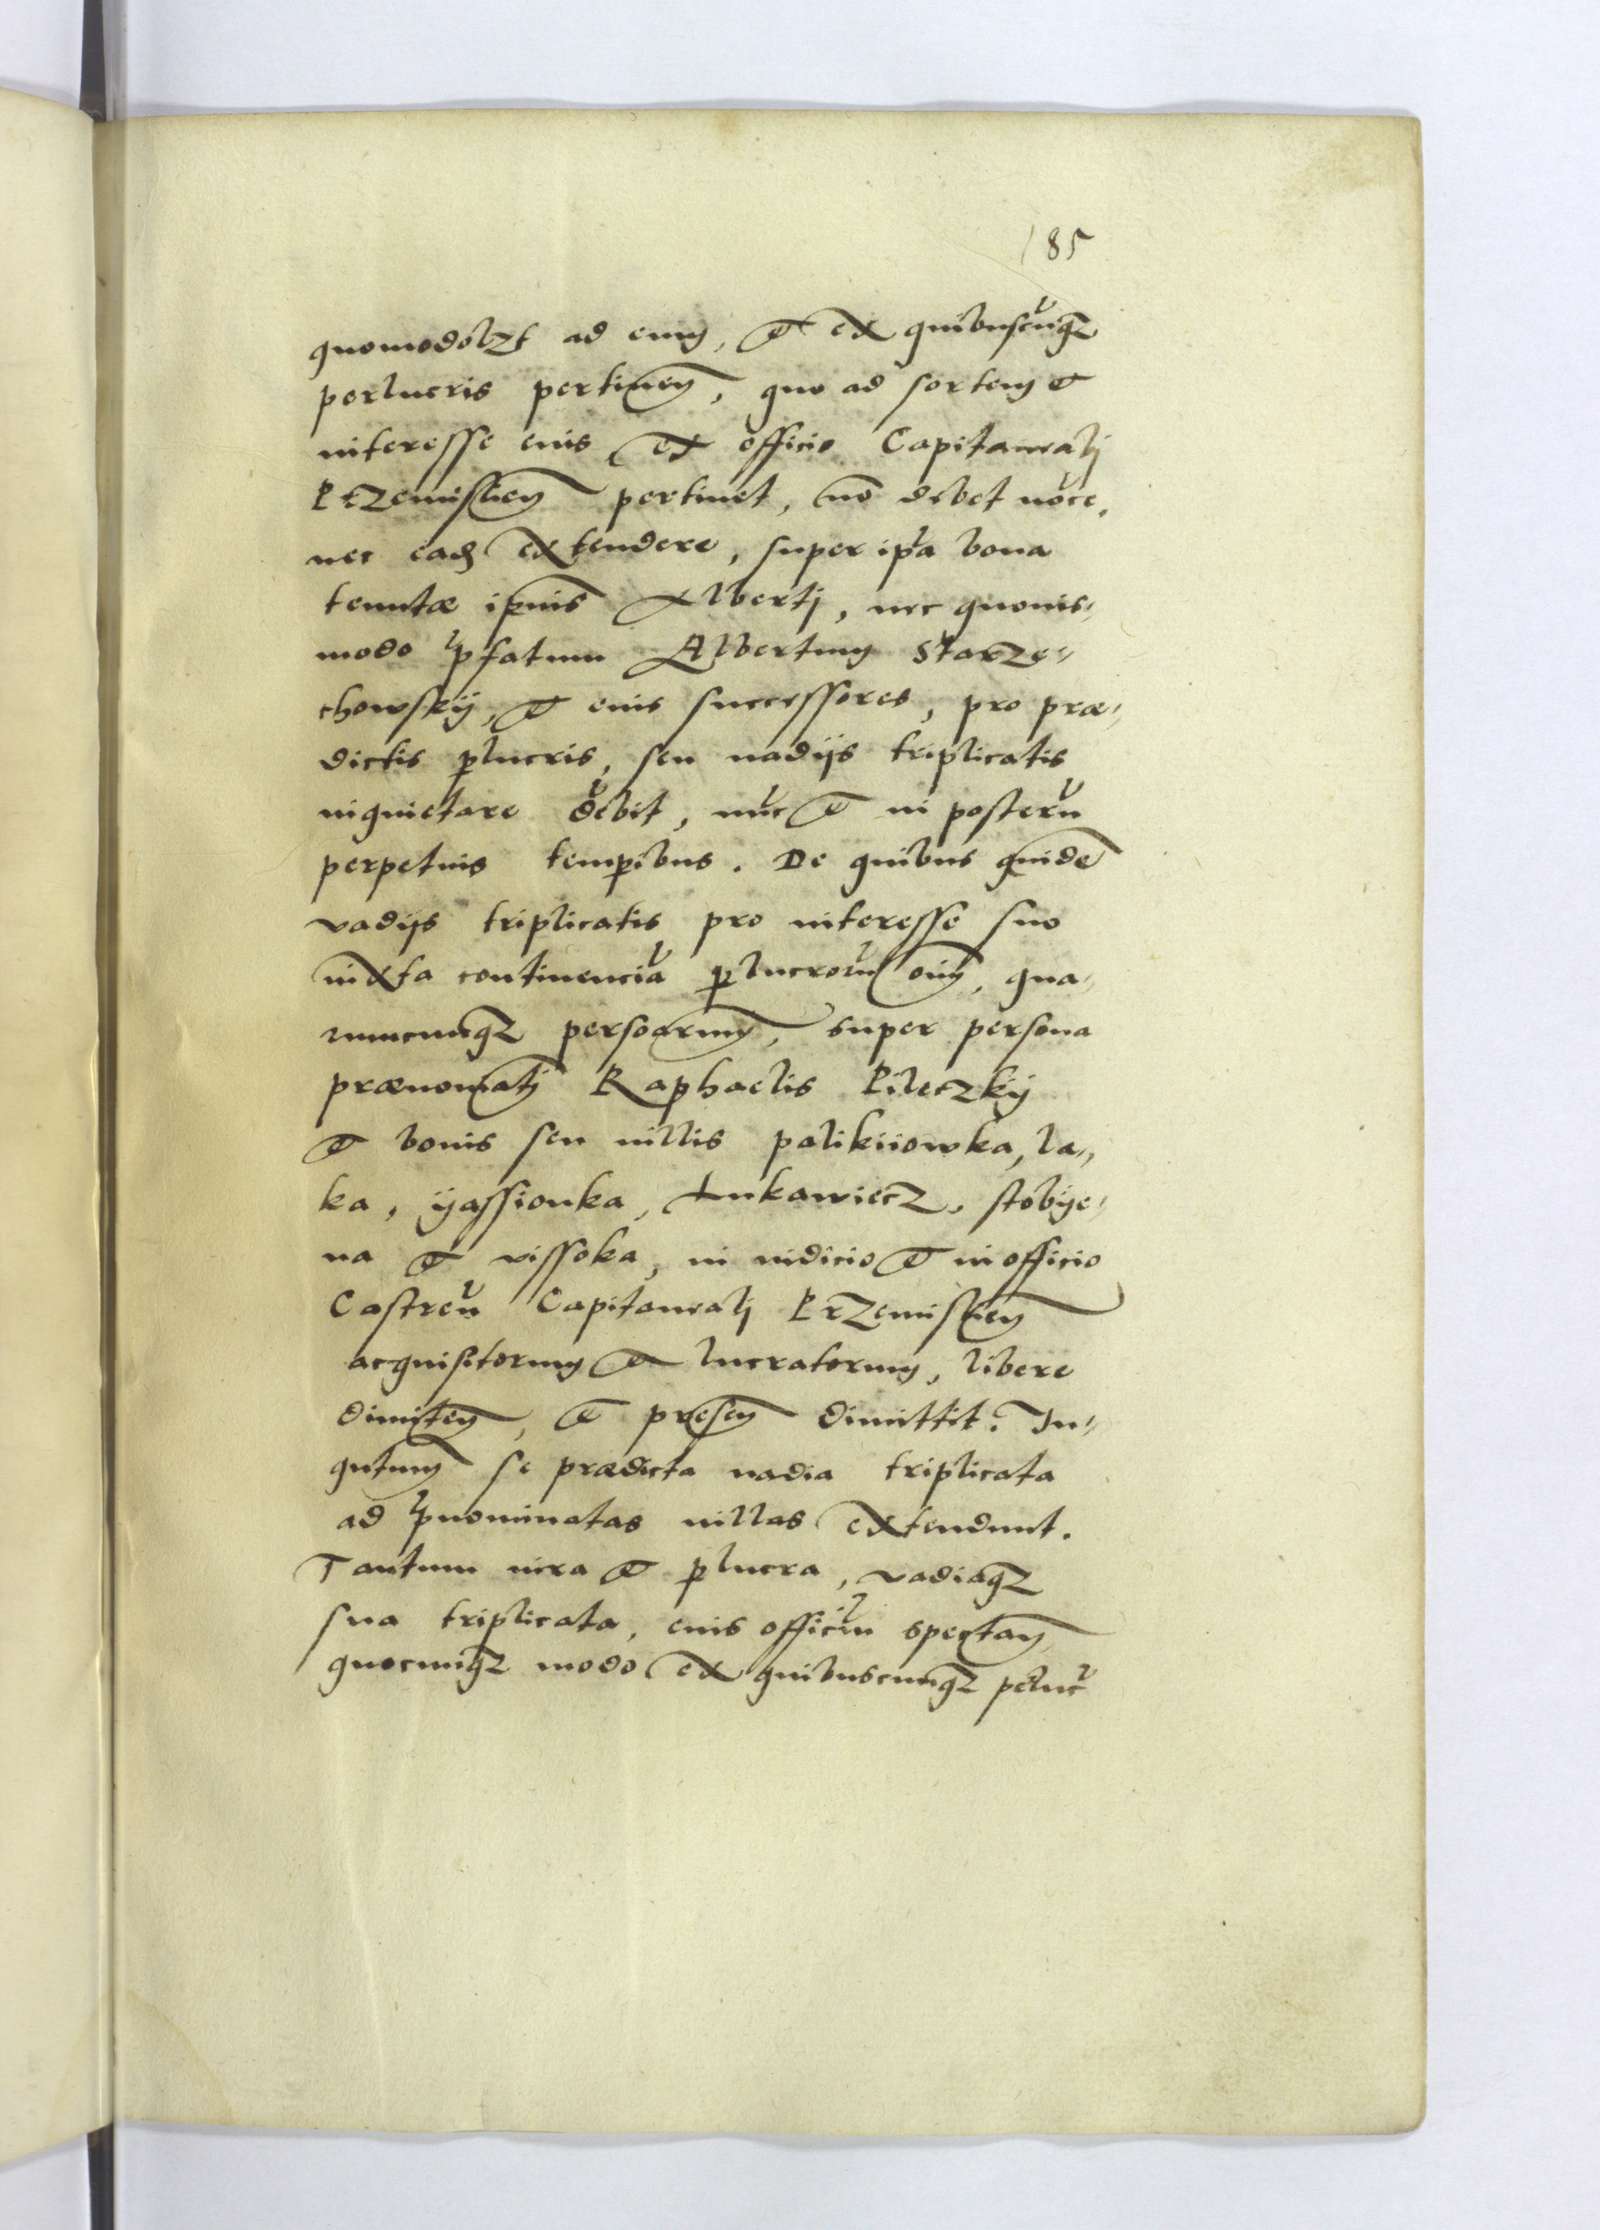 185
quomodolzt ad eum, et ex quibuscūqz
perlucris pertineñ, quo ad sortem et
interesse eius ex officio Capitaneali
Przemislieñ pertinet, nō debet nōce,
nec eadē extendere, super ipa bona
tenutæ ipius Alberti, nec quouis„
modo pfatum Albertum Starze„
chowskÿ, et eius successores, pro præ„
dictis plucris, seu uadÿs triplicatis
inquietare dēbit, nūc et in posterū
perpetuis temporibus. De quibus quidē
vadÿs triplicatis pro interesse suo
iuxta continenciā plucrorū oīm, qua„
rumcumqz persoarum, super persona
prænomati Raphaelis Pileczkÿ
et bonis seu uillis palikiiowka, la„
ka, ÿassionka, Lukawiecz, stobÿe„
na et vissoka, in iudicio et in officio
Castreñ Capitaneali Przemislieñ
acquisitorum et lucratorum, libere
dimiteñ, et preseñ dimittit. In„
qutum se prædicta uadia triplicata
ad pnominatas uillas extendunt.
Tantum iura et plucra, vadiaqz
sua triplicata, eius officiū spectañ
quocumqz modo ex quibuscumqz peluc